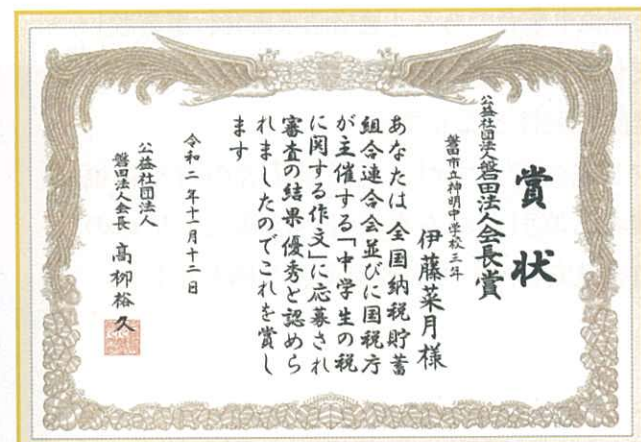 賞状
公益社団法人磐田法人会長賞
磐田市立神明中学校三年
伊藤菜月様
あなたは 全国納税貯蓄
組合連合会並びに国税庁
が主催する「中学生の税
に関する作文」に応募され
審査の結果優秀と認めら
れましたのでこれを賞し
ます
令和二年十一月十二日
公益社団法人
磐田法人会長 髙柳裕久